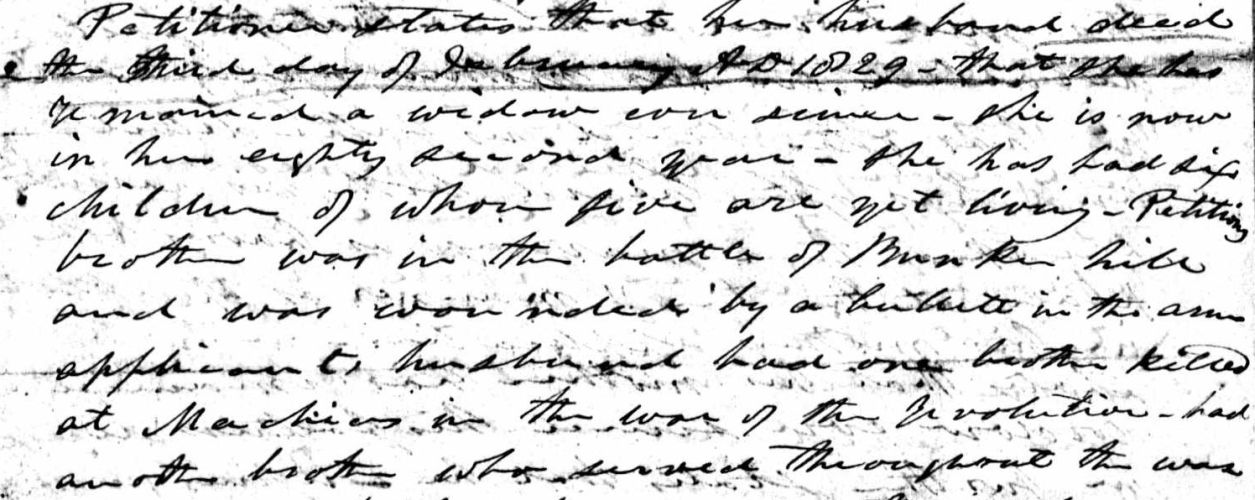 Petitioner states that her husband died
the third day of February AD 1829 - that she has
remained a widow ever since - she is now
in her eighty second year - she has had six
children of whom five are yet living - Petitions
brother was in the battle of Bunker hill
and was wounded by a bullett in the arm
applicants husband had one brother killed
at Machias in the war of the revolution - had
another brother who served throughout the war